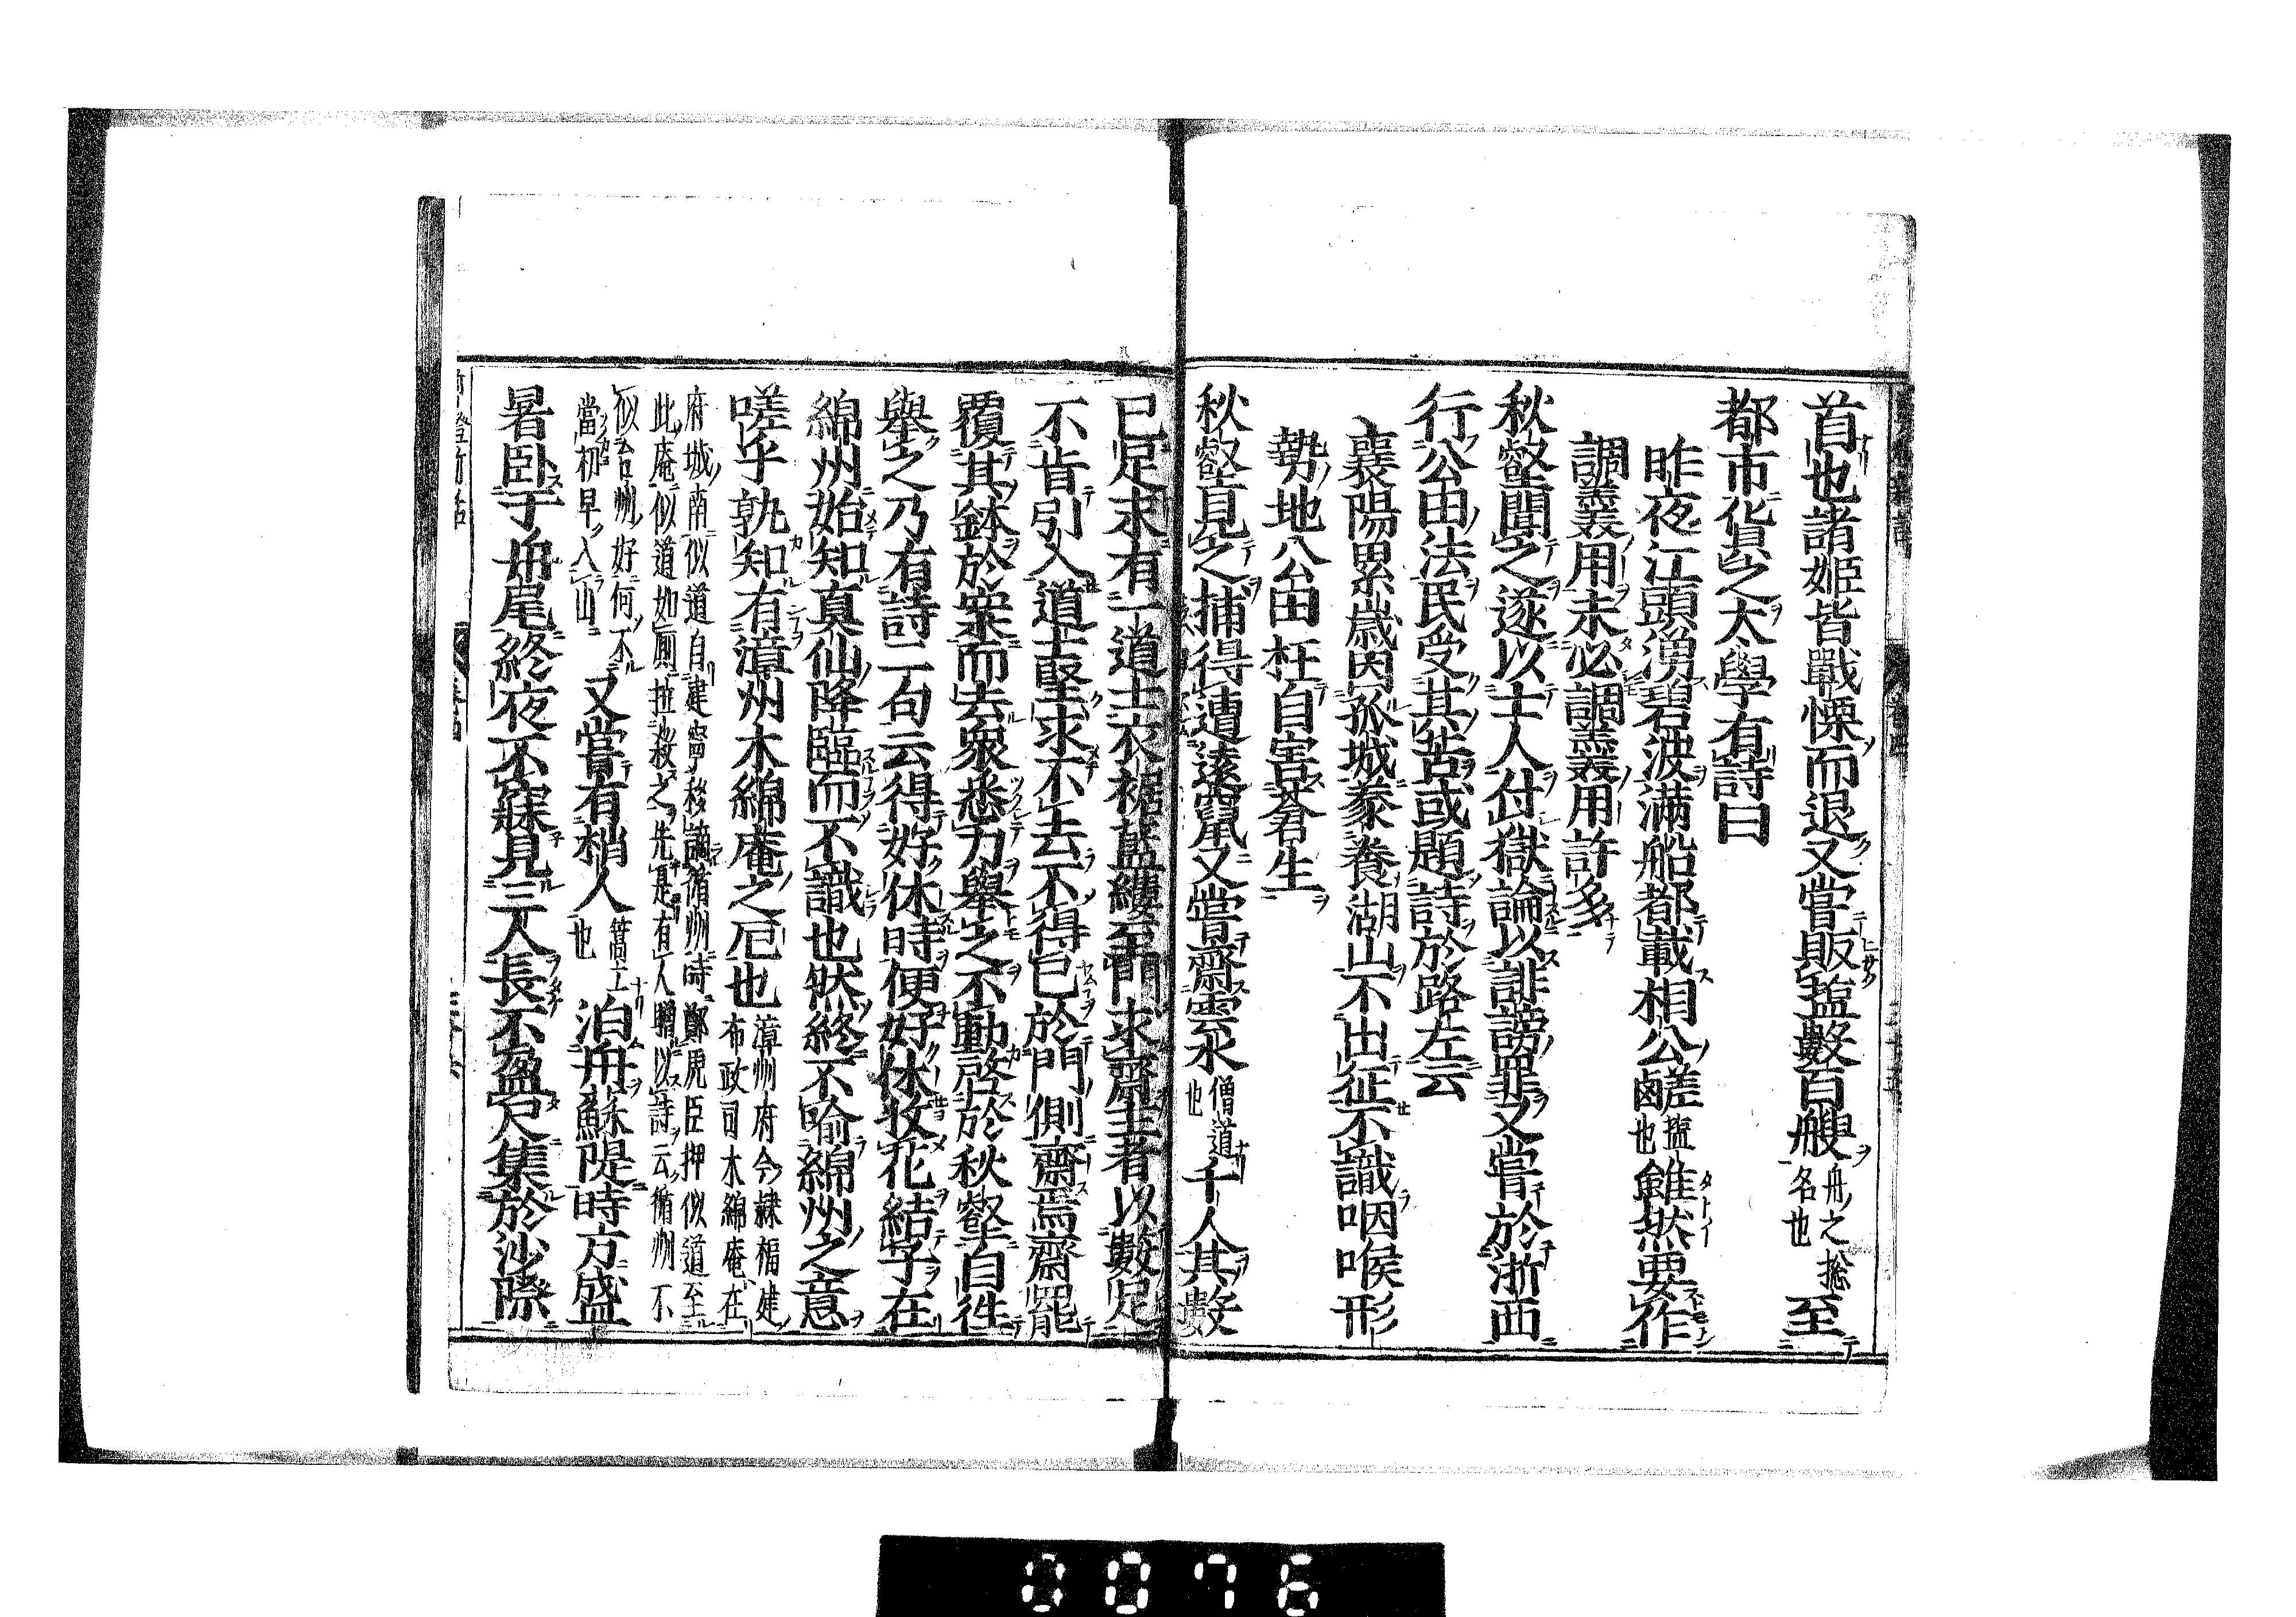 首也諸姬皆戰慄而退又嘗販塩數百艘舟之捴名也至
都市貨之太學有詩曰
昨夜江頭湧碧波滿船都載相公鹺塩鹵也雖然要作
調羹用未必調羹用許多
秋壑聞之遂以士人付獄論以誹謗罪又嘗於浙西
行公田法民受其苦或題詩於路左云
襄陽累歲因孤城豢養湖山不出征不識咽喉形
勢地公田枉自害蒼生
秋壑見之捕得遭遠竄又嘗齋雲水僧道也千人其數
已足末有一道士衣裾藍縷至門求齋主者以數足
不肯引入道士堅求不去不得已於門側齋焉齋罷
覆其鉢於案而去衆悉力舉之不動啓於秋壑自徃
舉之乃有詩二句云得好休時便好休收花結子在
綿州始知真仙降臨而不識也然終不喻綿州之意
嗟乎孰知有漳州木綿庵之厄也漳州府今隷福建布政司木綿庵在
府城南似道自建寧移謫循州時鄭虎臣押似道至
此庵似道如厠拉殺之先是有人贈以詩云循州不
似台州好何不
當初早入山又嘗有梢人篙工也泊舟蘇隄時方盛
暑臥于舟尾終夜不寐見三人長不盈尺集於沙際
0076